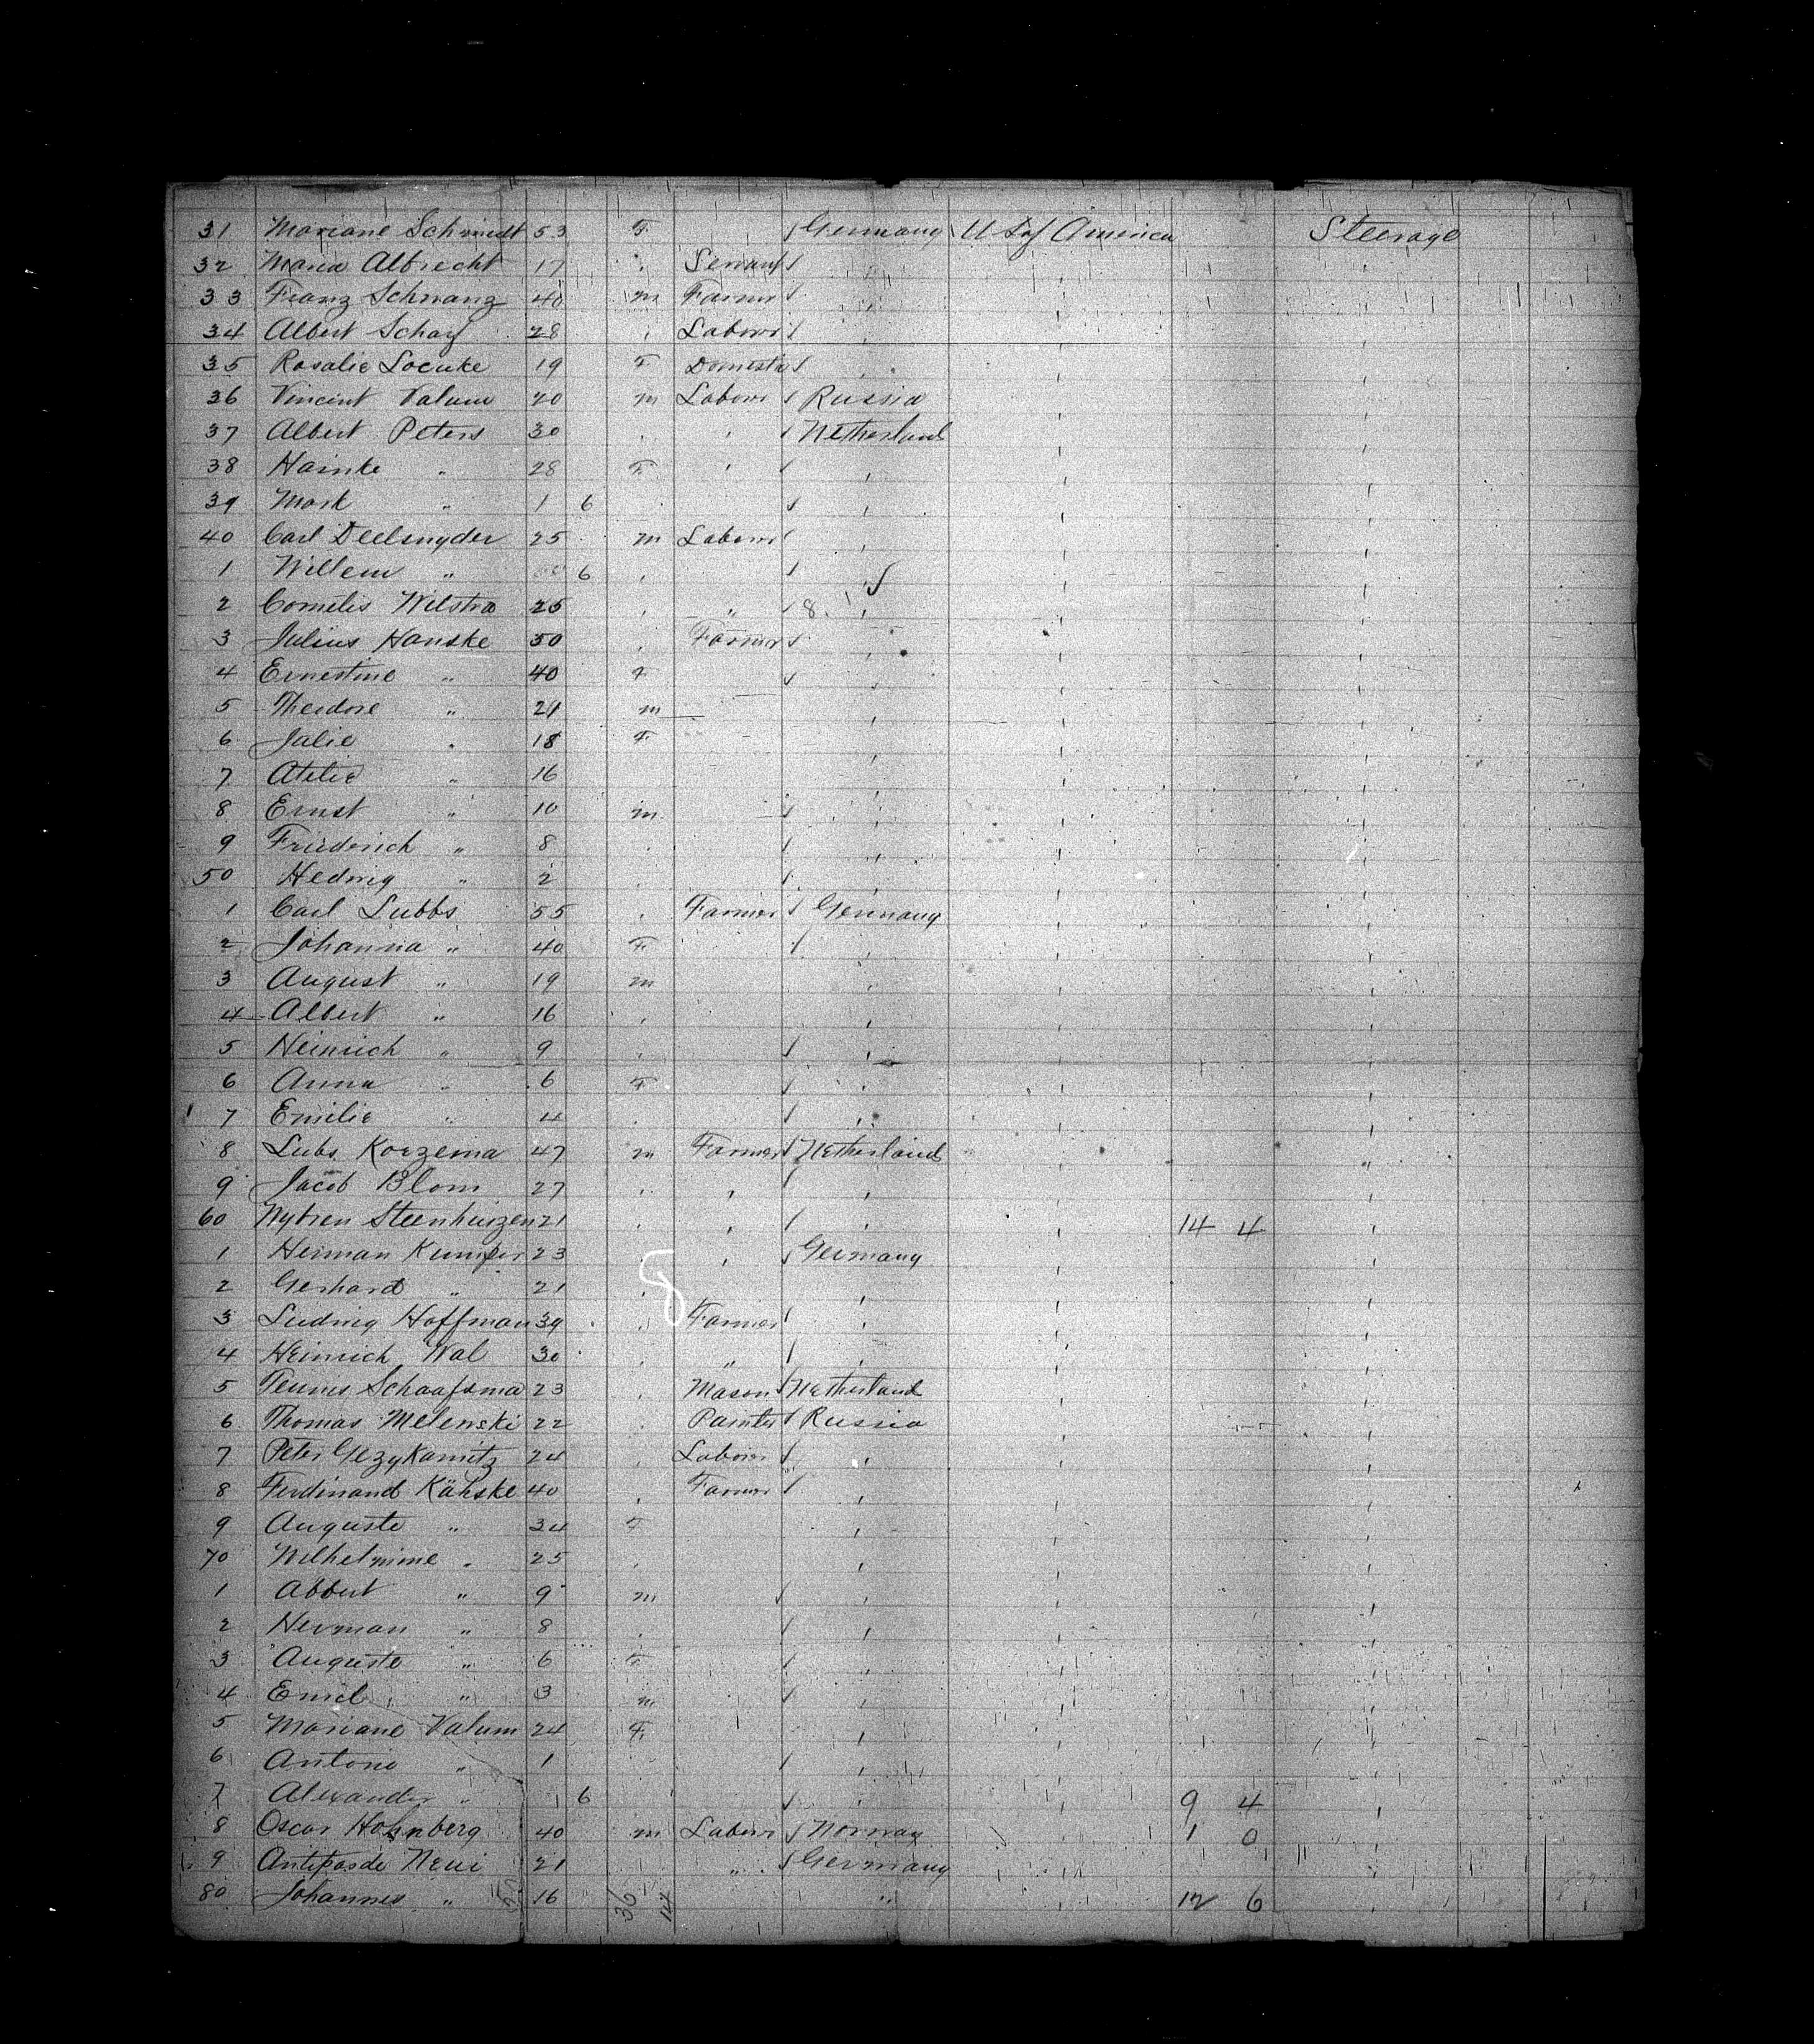 31 Mariane Schmidt 53 F. Germany U S of America Steerage
32 Maria Albrecht 17 " Servant
33 Franz Schwanz 40 m Farmer
34 Albert Scharf 28 " Laborer
35 Rosalie 19 F Domestic
36 Vincent Valum 20 m Laborer Russia
37 Albert Peters 30 " " Netherland
38 Hainke " 28 F " "
39 Mark " 1 6 "
40 Carl Deelsnyder 25 m Laborer "
1 Willem " 6 " "
2 Cornelis Wilstra 25 " " 8. "
3 Julius Hanske 50 " Farmer "
4 Ernestine " 40 F "
5 Theodore " 21 m "
6 Julie " 18 F "
7 Atilie " 16 "
8 Ernst " 10 m "
9 Friederich " 8 " "
50 Hedwig " 2 " "
1 Carl Lubbs 55 " Farmer Germany
2 Johanna " 40 F "
3 August " 19 m "
4 Albert " 16 " "
5 Heinrich " 9 " "
6 Anna " 6 F "
7 Emilie " 4 " "
8 Lubs Korzema 47 m Farmer Netherland "
9 Jacob Blom 27 " " "
60 Wybren Steenhuizen 21 " " " 14 4
1 Herman Kumper 23 " " Germany
2 Gerhard " 21 " "
3 Ludwig Hoffman 39 " Farmer "
4 Heinrich Wal 30 " " "
5 Teunis Schaafsma 23 " Mason Netherland
6 Thomas Melenski 22 " Painter Russia
7 Peter 24 " Laborer "
8 Ferdinand Kähske 40 " Farmer "
9 Auguste " 34 F "
70 Wilhelmine " 25 " "
1 Abbert " 9 m "
2 Herman " 8 " "
3 Auguste " 6 F "
4 Emil " 3 m "
5 Mariane Valum 24 F. "
6 Antonio " 1 "
7 Alexander " 1 6 " 9 4
8 Oscar Hohnberg 40 m Laborer Norway 1 0
9 21 " Germany
80 Johannes " 16 36 14 " 12 6